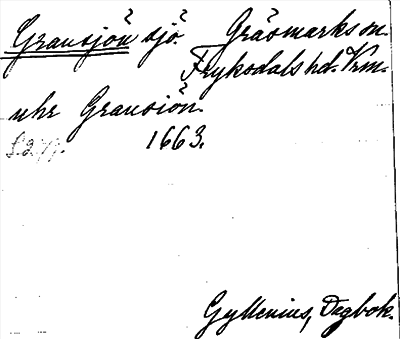 Gransjön sjö. Gräsmarks sn.
Fryksdals hd. Vrm.
uhr Gransiön.
S. 277. 1663.
Gyllenius, Dagbok.